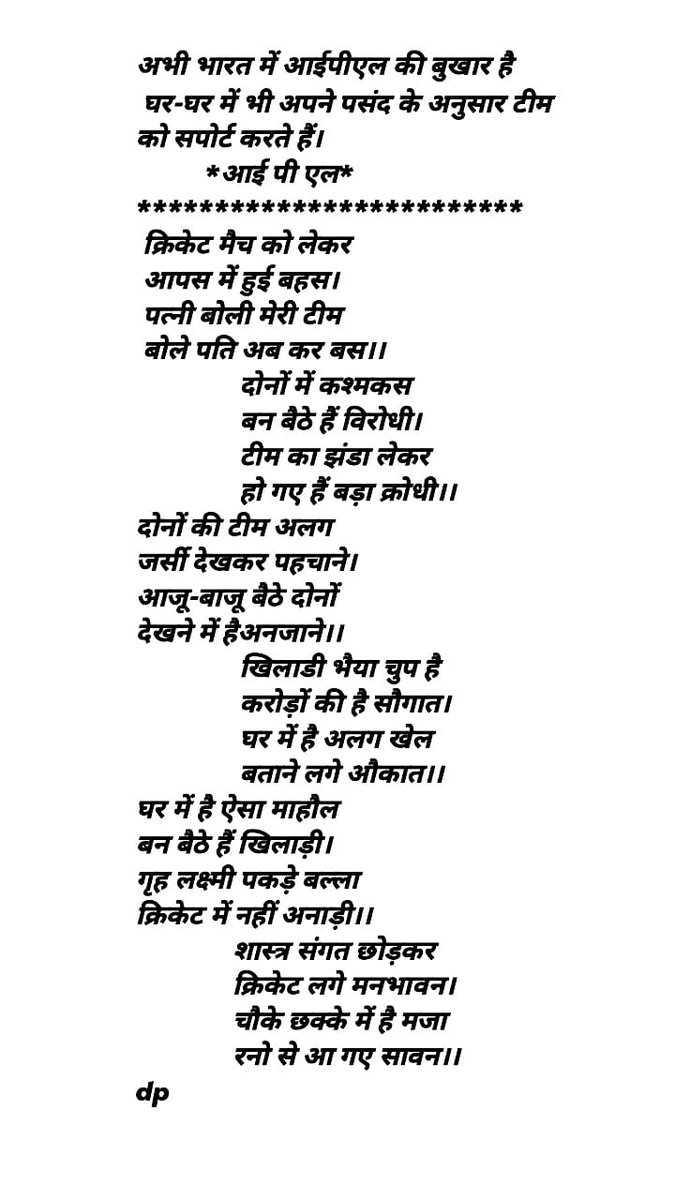 अभी भारत में आईपीएल की बुखार है
घर-घर में भी अपने पसंद के अनुसार टीम
को सपोर्ट करते हैं।
*आई पी एल*
*************************
क्रिकेट मैच को लेकर
आपस में हुई बहस।
पत्नी बोली मेरी टीम
बोले पति अब कर बस।।
दोनों में कश्मकस
बन बैठे हैं विरोधी।
टीम का झंडा लेकर
हो गए हैं बड़ा क्रोधी।।
दोनों की टीम अलग
जर्सी देखकर पहचाने।
आजू-बाजू बैठे दोनों
देखने में हैअनजाने।।
खिलाडी भैया चुप है
करोड़ों की है सौगात।
घर में है अलग खेल
बताने लगे औकात।।
घर में है ऐसा माहौल
बन बैठे हैं खिलाड़ी।
गृह लक्ष्मी पकड़े बल्ला
क्रिकेट में नहीं अनाड़ी।।
शास्त्र संगत छोड़कर
क्रिकेट लगे मनभावन।
चौके छक्के में है मजा
रनो से आ गए सावन।।
dp